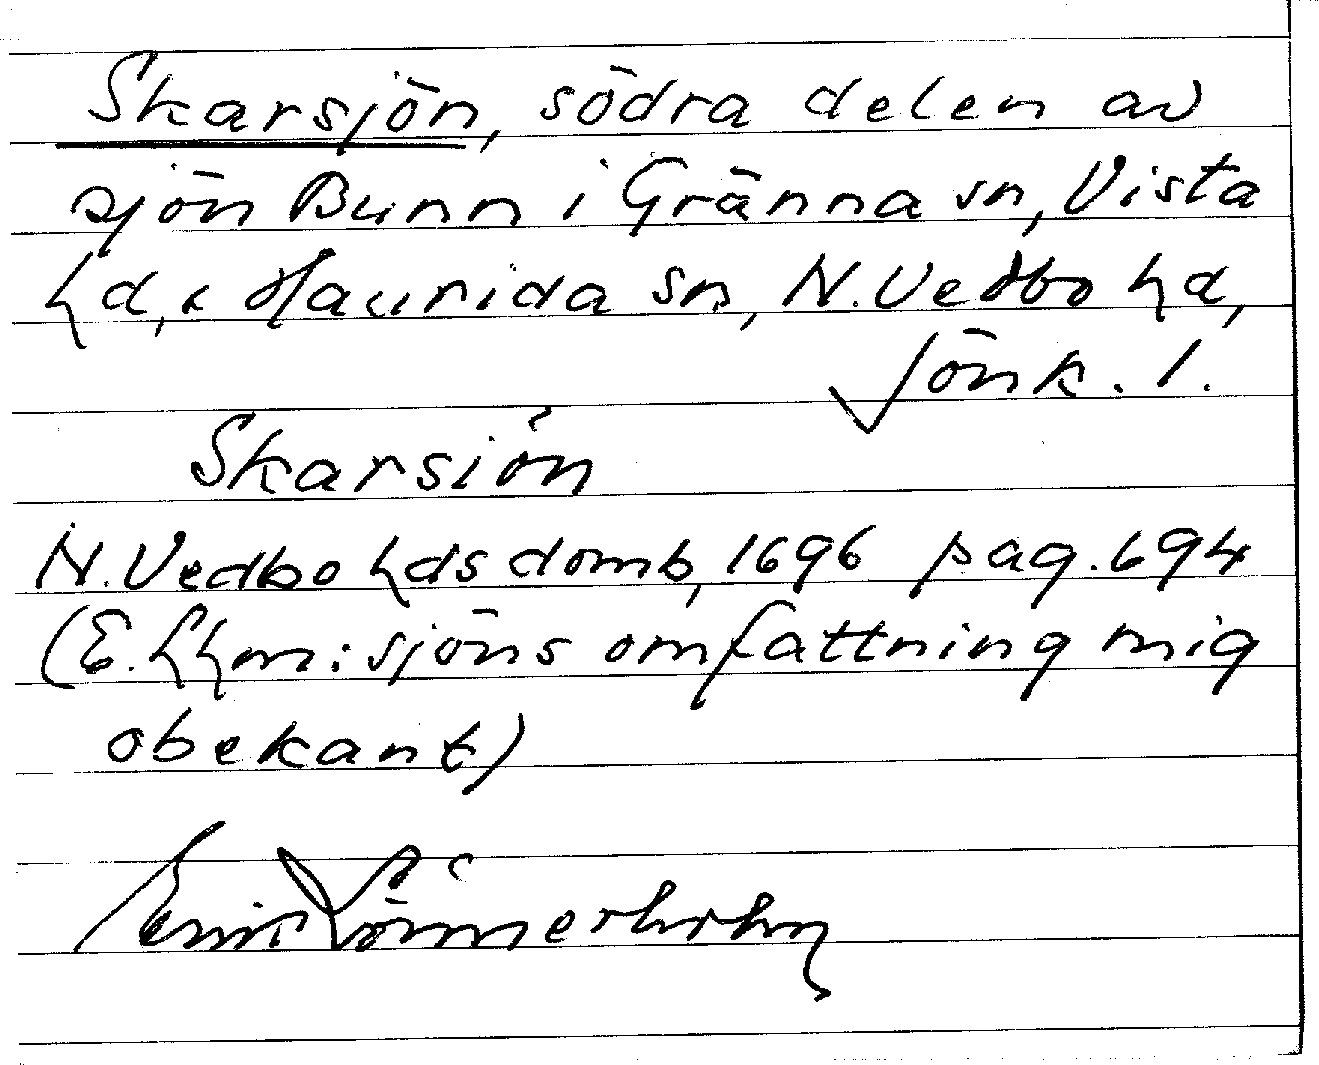 Skarsjön, södra delen av
sjön Bunn i Gränna sn, Vista
hd, & Haurida sn, N. Vedbo hd,
Jönk. l.
Skarsiön
N. Vedbo hds domb, 1696 pag. 694
(E. Hhm: sjöns omfattning mig
obekant)